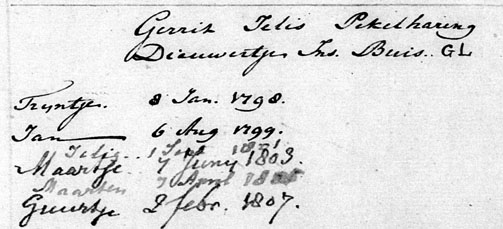 Gerrit Jelis Pekelharing
Dieuwertje Jns. Buis. GL
Tryntje. 8 Jan. 1798.
Jan 6 Aug 1799.
Jelis. 1 Sept 1801
Maartje 7 Juny 1803.
Maarten 7 April
Guurtje 2 febr. 1807.